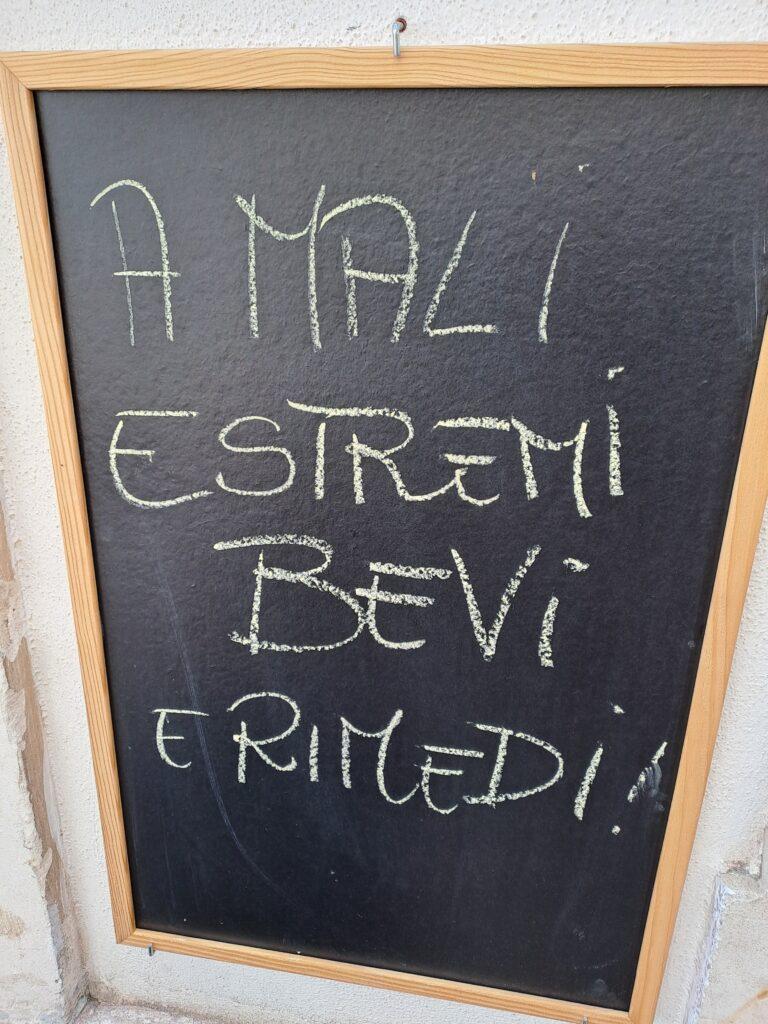 A MALI
ESTREMI
BEVI
E RIMEDI!